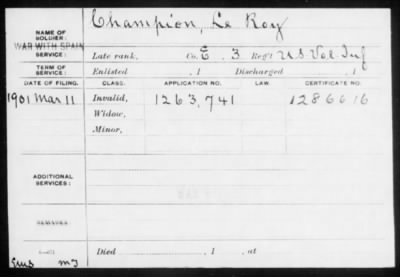 NAME OF SOLDIER: Champion, Le Roy
WAR WITH SPAIN
SERVICE: Late rank, Co. E. 3 Reg't U.S. Vol. Inf
TERM OF SERVICE: Enlisted , 1 Discharged , 1
DATE OF FILING. CLASS. APPLICATION NO. LAW. CERTIFICATE NO.
1901 Mar 11 Invalid, 1263,741 1286616
Widow,
Minor,
ADDITIONAL SERVICES:
REMARKS
Died , 1 , at